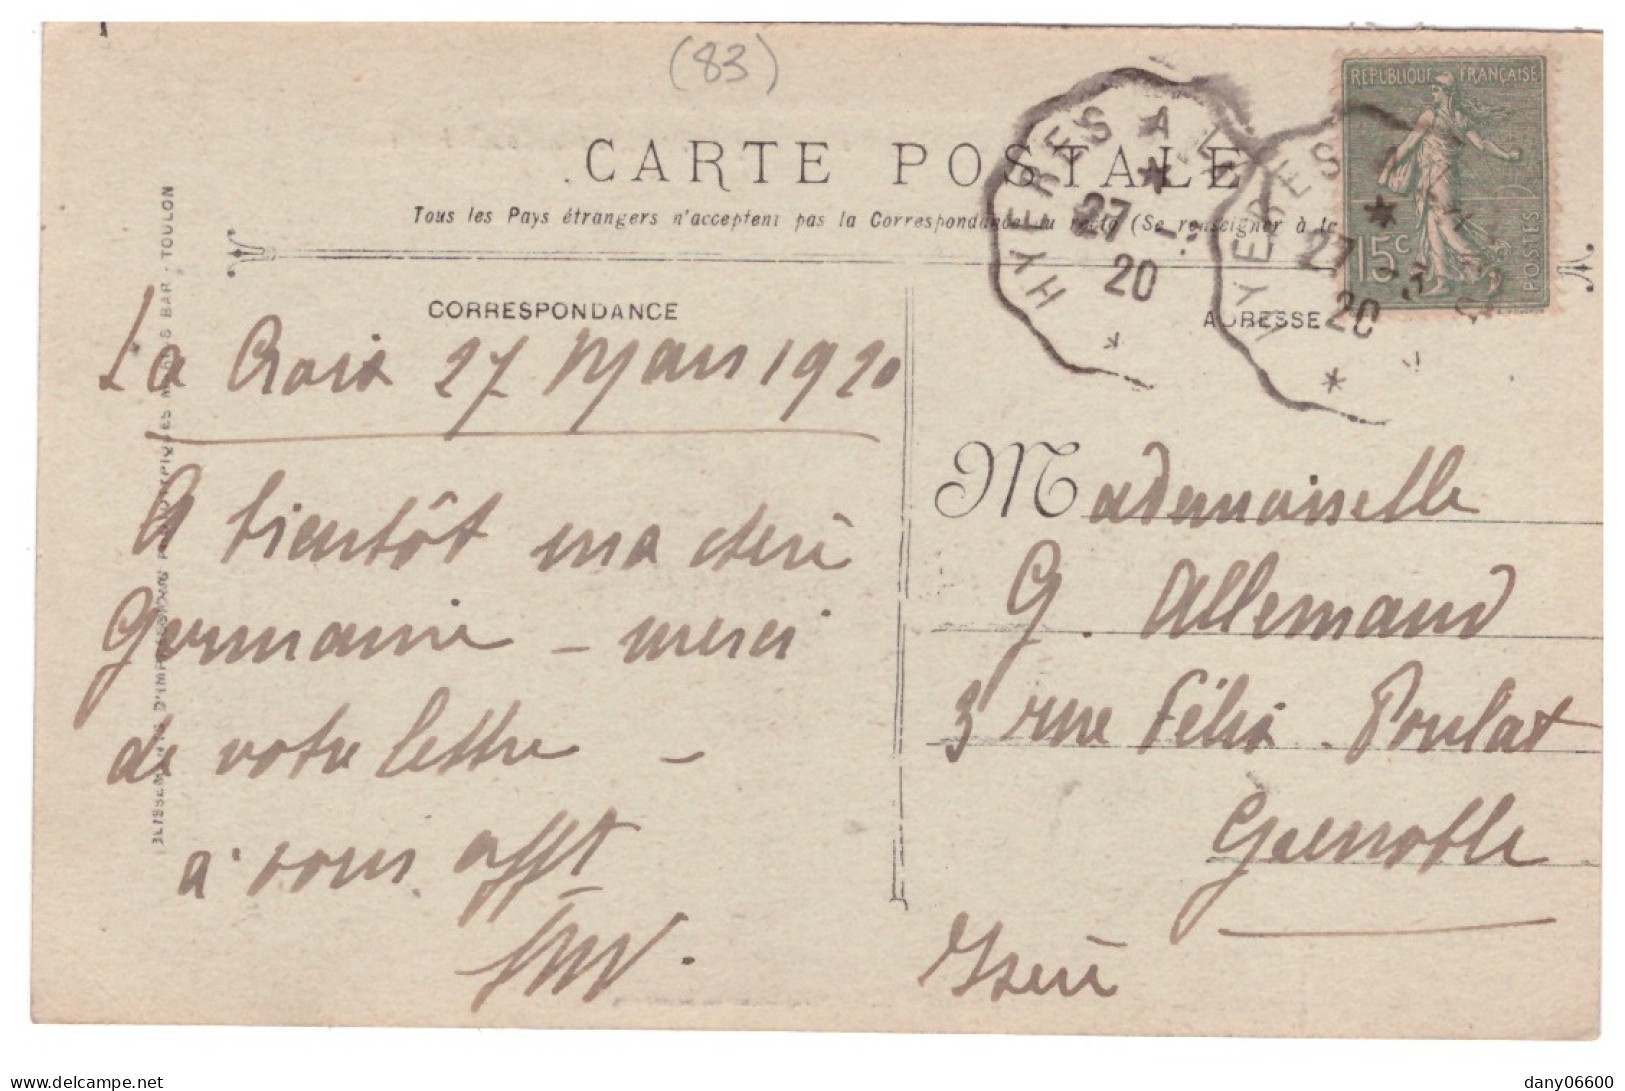 (83)
CARTE POSTALE
Tous les Pays étrangers n'acceptent pas la Correspondance au recto (Se renseigner à la
CORRESPONDANCE
ADRESSE
REPUBLIQUE FRANÇAISE
15c
POSTES
HYERES A
27 - 3
20
HYERES A
27 - 3
20
La Croix 27 Mars 1920
A bientôt ma chère
Germaine - merci
de votre lettre -
à vous afft
Mademoiselle
G. Allemand
3 rue Félix Poulat
Grenoble
Isère
D'IMPRESSIONS
BAR - TOULON
dany06600